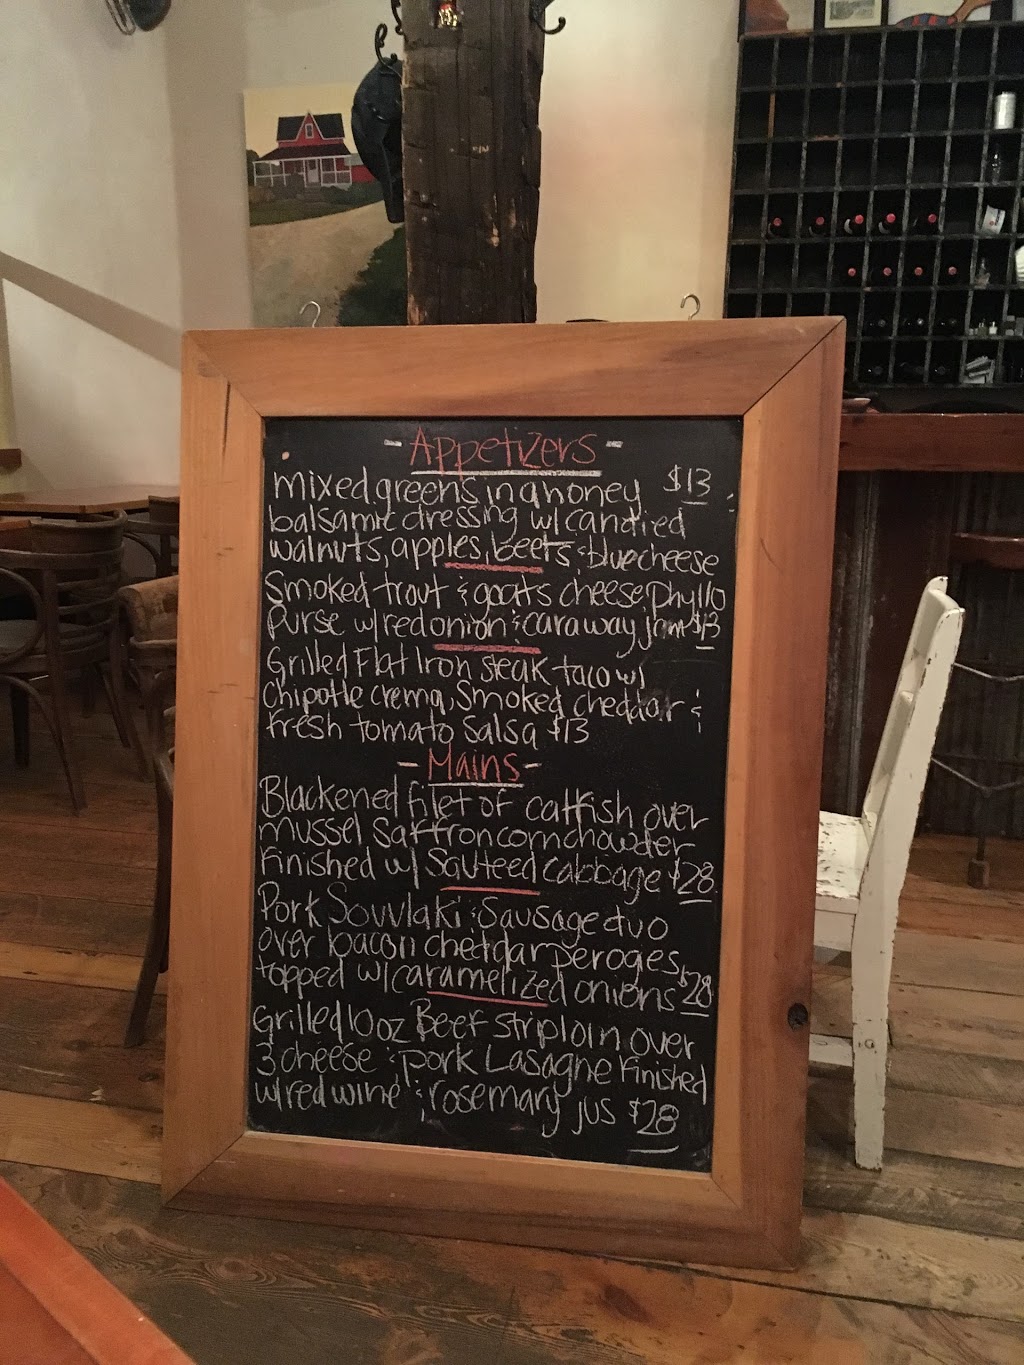 - Appetizers -
mixed greens in a honey $13
balsamic dressing w/ candied
walnuts, apples, beets & blue cheese
Smoked trout & goats cheese Phyllo
Purse w/ red onion & caraway jam $13
Grilled Flat Iron steak taco w/
Chipotle crema, Smoked cheddar &
fresh tomato Salsa $13
- Mains -
Blackened filet of catfish over
mussel Saffron corn chowder
Finished w/ Sauteed Cabbage $28
Pork Souvlaki & Sausage duo
over bacon cheddar peroges
topped w/ caramelized onions $28
Grilled 10 oz Beef striploin over
3 cheese & pork Lasagne Finished
w/ red wine & rosemary jus $28